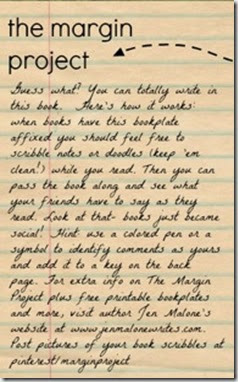 the margin
project
Guess what? You can totally write in
this book. Here's how it works:
when books have this bookplate
affixed you should feel free to
scribble notes or doodles (keep 'em
clean!) while you read. Then you can
pass the book along and see what
your friends have to say as they
read. Look at that- books just became
social! Hint: use a colored pen or a
symbol to identify comments as yours
and add it to a key on the back
page. For extra info on The Margin
Project plus free printable bookplates
and more, visit author Jen Malone's
website at www.jenmalonewrites.com.
Post pictures of your book scribbles at
pinterest/marginproject